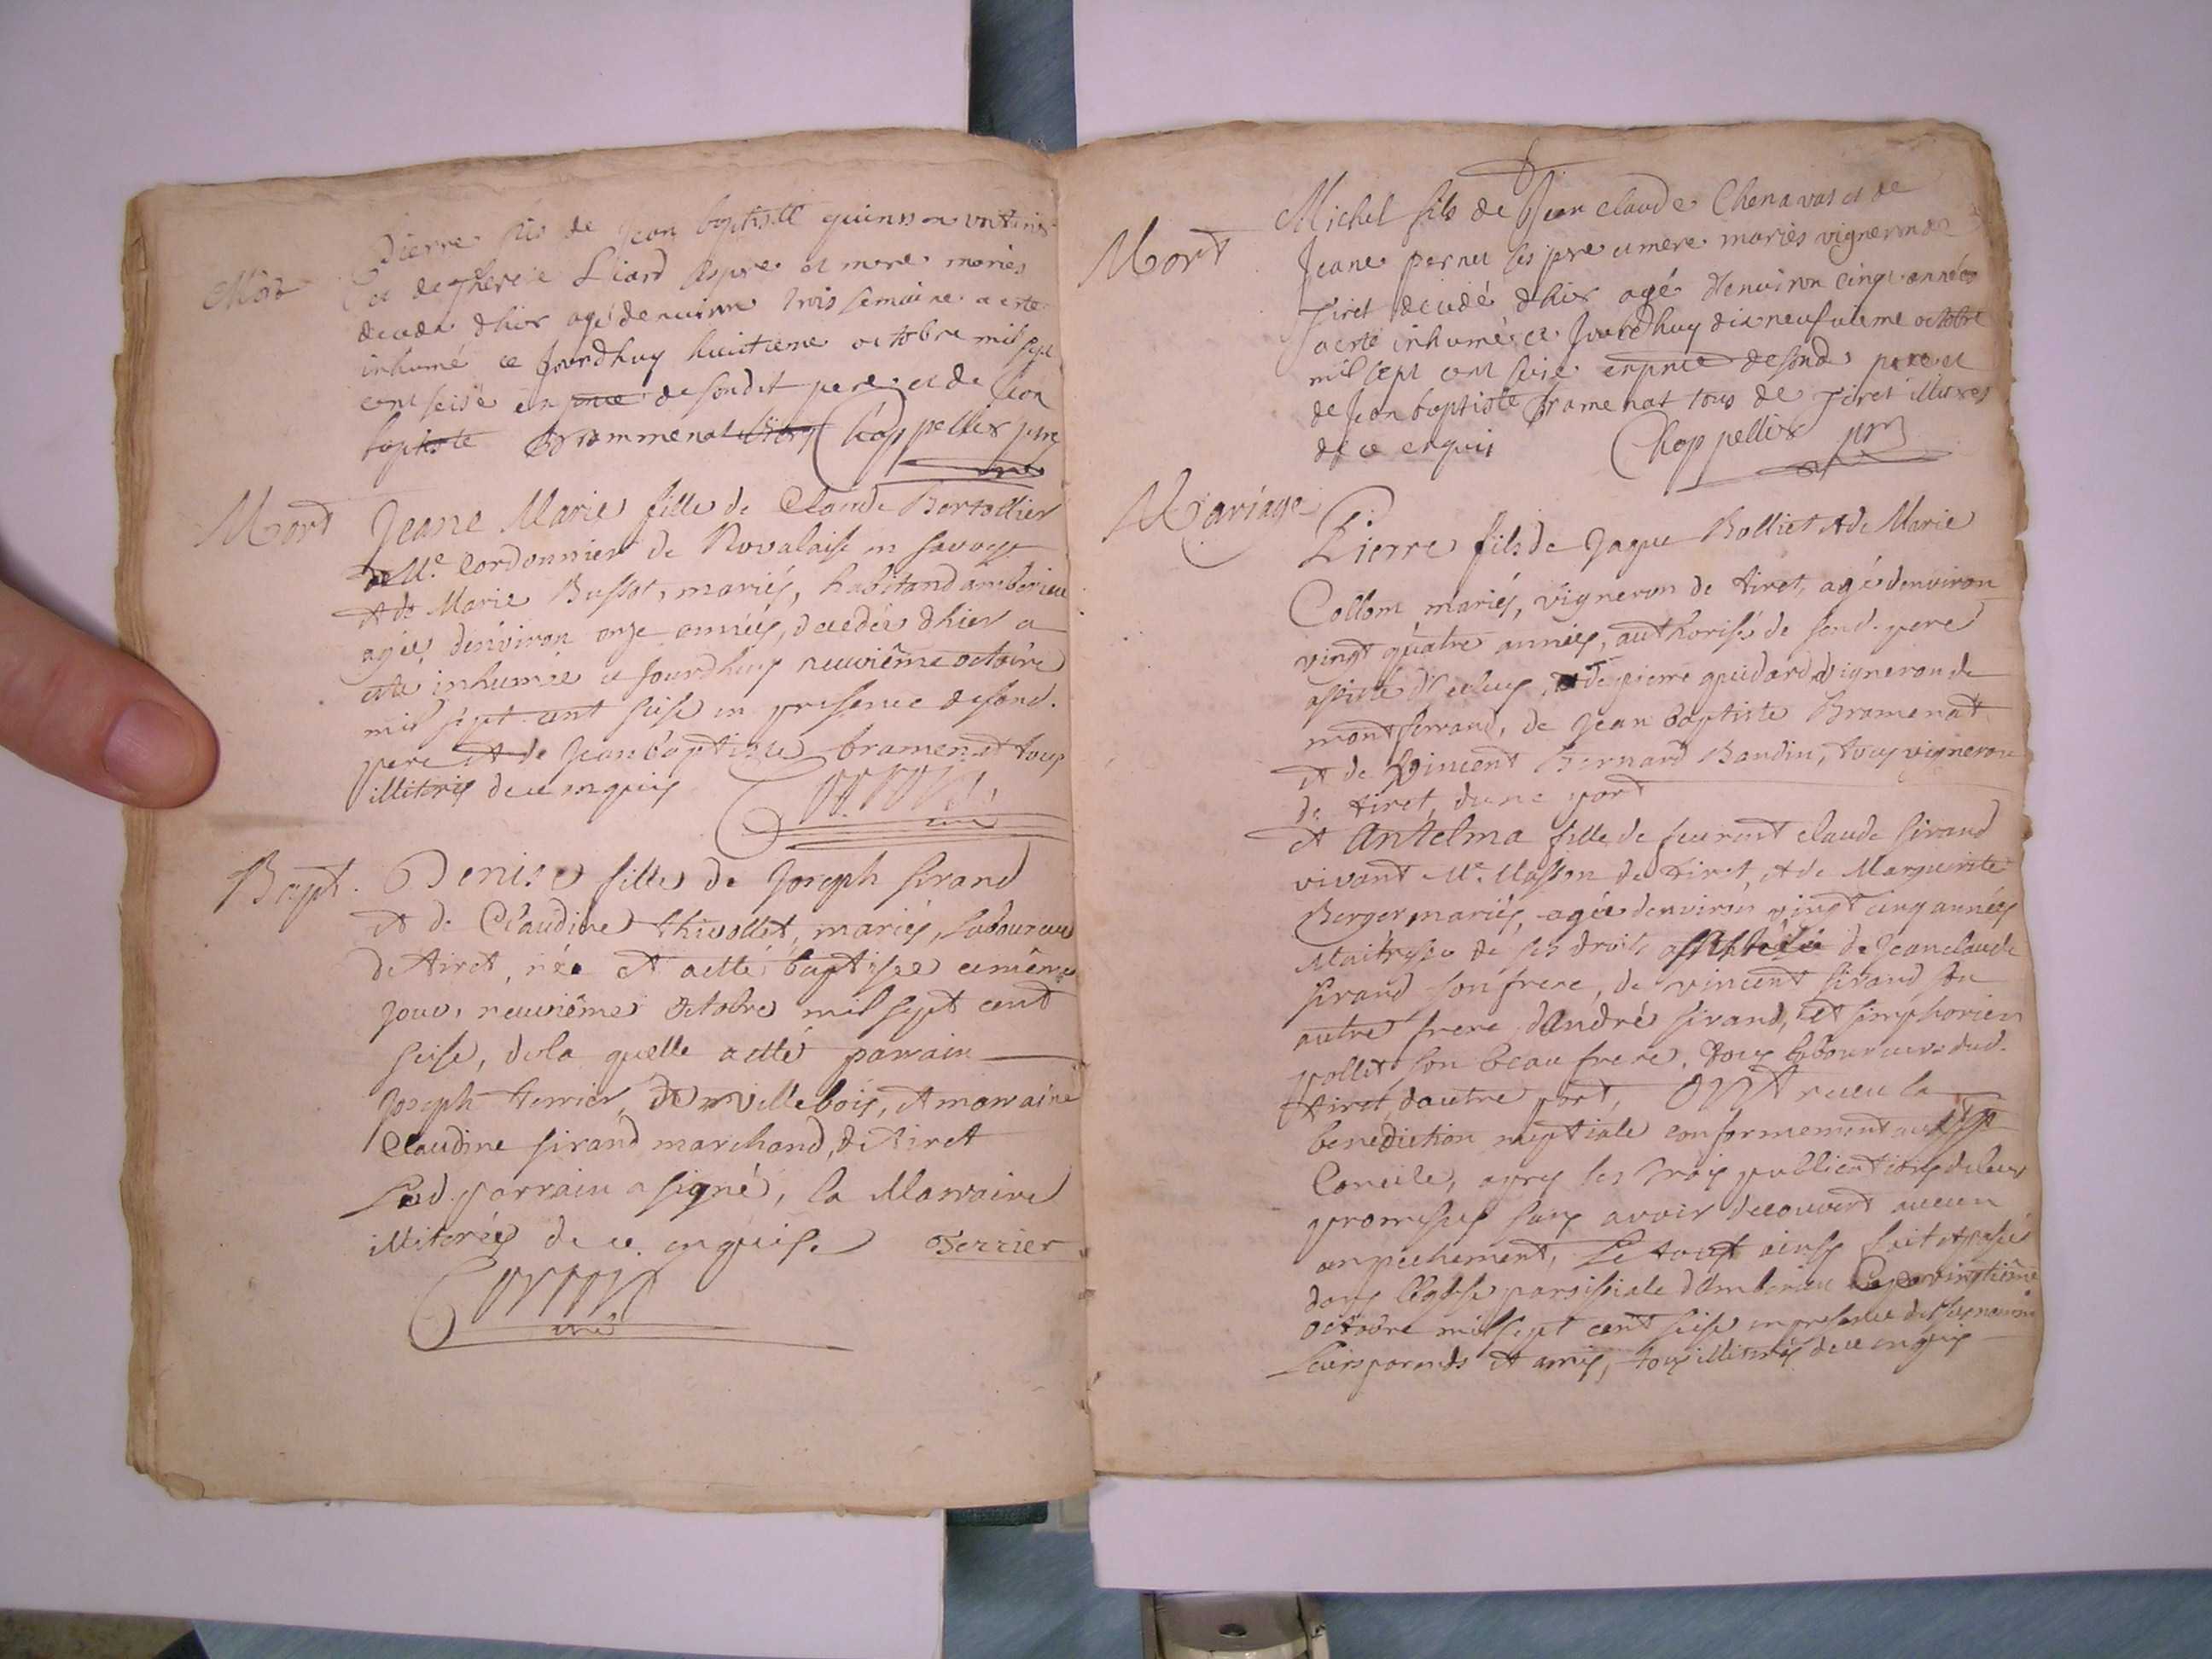 Mort
Pierre fils de Jean baptiste quinson
et de Therese Liard ses pre et mere mariés
decede dhier agé denuiron trois semaine a este
inhumé ce Jourdhuy huictieme octobre mil sept
cent seise en pnce de sondit pere et de Jean
baptiste Brammenat Chappellier ptre
Mort
Jeane Marie fille de Claude Bertollier
Me. Cordonnier de Novalaise en savoye
et de Marie Bussot, mariés, habitand amberieu
agée denviron onze années, decedée dhier a
esté inhumée ce jourdhuy neuvième octobre
mil sept cent seise en presence de sond.
pere et de Jean baptiste bramenat tous
illiterés de ce enquis
Bapt.
Denise fille de Joseph sirand
et de Claudine thivollet, mariés, laboureur
de tiret, née et a etté baptisée ce même
jour, neuvième octobre mil sept cent
seise, de la quelle a etté parrain
Joseph terrier, de villebois, et marraine
Claudine sirand marchand, de tiret
Led. parrain a signé, la Marraine
illiterée de ce enquise Terrier
Mort
Michel fils de Jean claude Chenavas et de
Jeane pernet ses pre et mere mariés vigneron de
Tiret decedé dhier agé denuiron cinq années
a este inhumé ce Jourdhuy dix neufuieme octobre
mil sept cent seise en pnce de sond. pere et
de Jean baptiste Bramenat tous de Tiret illiteres
de ce enquis Chappellier ptre
Mariage
Pierre fils de Jaque Bolliet et de Marie
Collom, mariés, vigneron de tiret, agé denviron
vingt quatre années, authorisé de sond. pere
assisté d'iceluy, et de pierre guidard, vigneron de
montferrand, de Jean baptiste Bramenat
et de Vincent Bernard Baudin, tous vignerons
de tiret, dune part
et Antelma fille de feu Claude sirand
vivant Me. Masson de tiret, et de Marguerite
Berger, mariés, agée denviron vingt cinq années
Maitresse de ses droits assistée de Jean claude
sirand son frere, de vincent sirand son
autre frere, dAndré sirand, et simphorien
pollet son beau frere, tous laboureurs dud.
tiret, dautre part, Ont receu la
benediction nuptiale conformement au st
Concile, apres les trois publications de leurs
promesses sans avoir decouvert aucun
anpechement, Le tout ainsy fait et passé
dans l'eglise parrissiale d'Amberieu ce vingtième
octobre mil sept cent seise en presence de
leurs parends et amis, tous illiterés de ce enquis